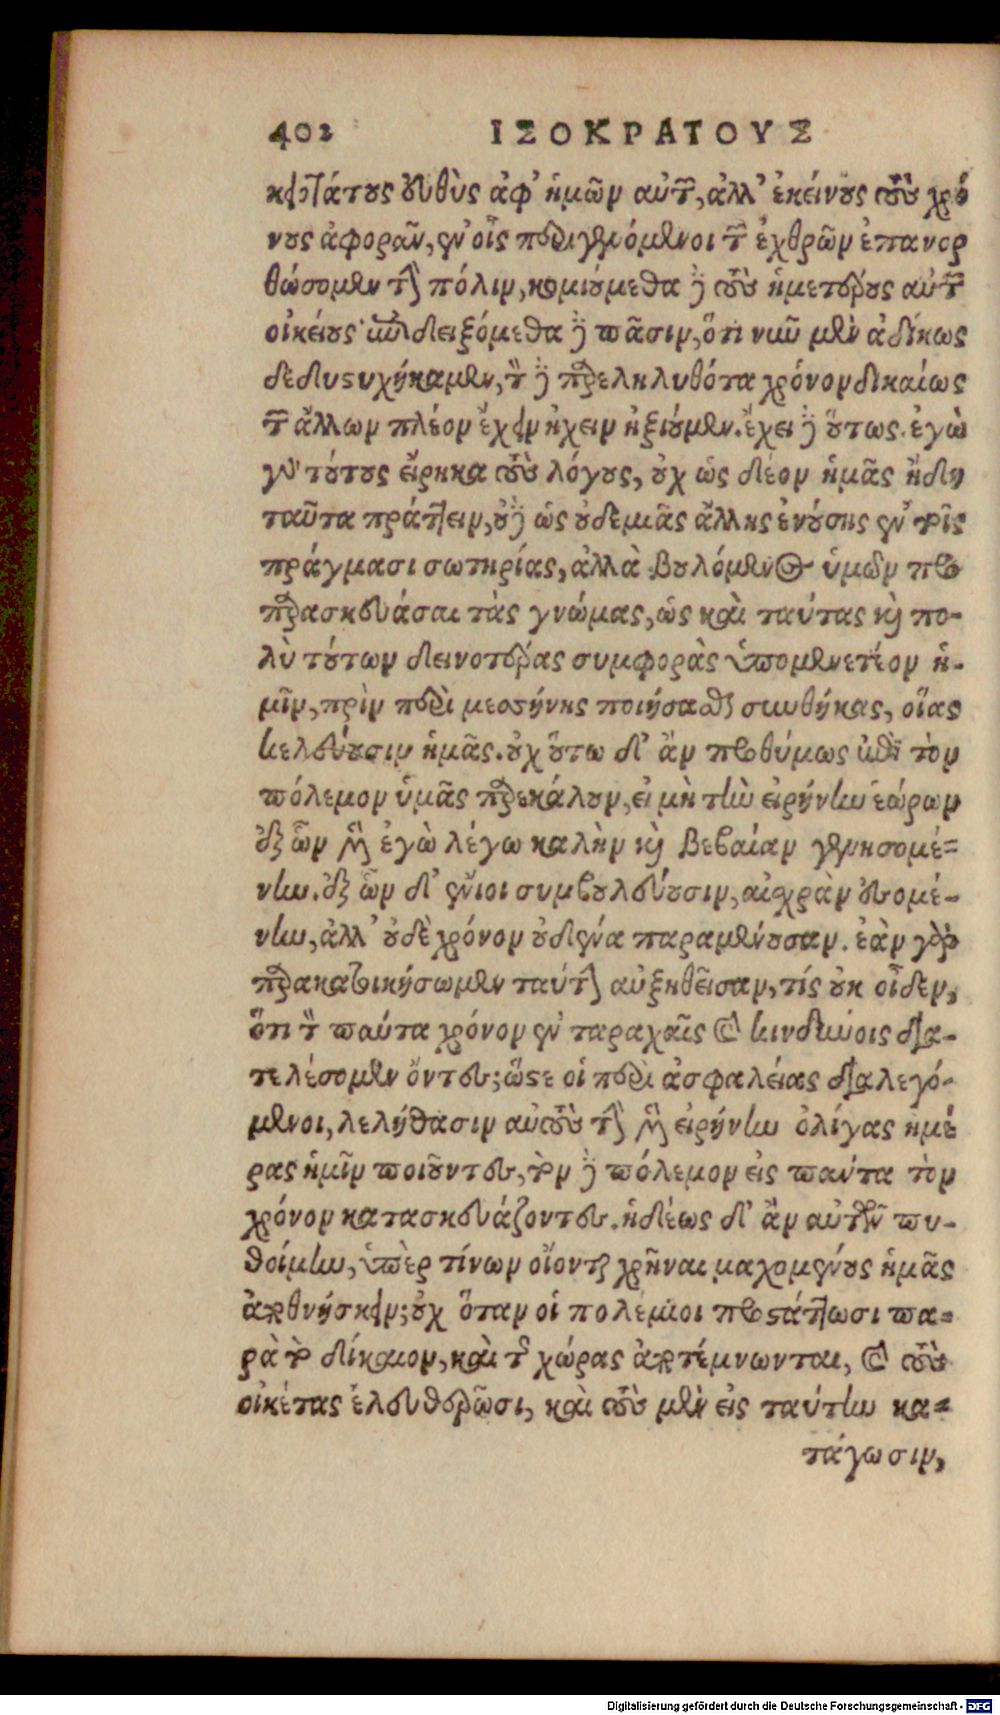 402 ΙΣΟΚΡΑΤΟΥΣ
κροτάτους εὐθὺς ἀφ' ἡμῶν αὐτῶν, ἀλλ' ἐκείνους τοὺς χρό
νους ἀφορᾶν, ἐν οἷς περιγενόμενοι τῶν ἐχθρῶν ἐπανορ
θώσομεν τὴν πόλιν, κομιούμεθα δὲ τοὺς ἡμετέρους αὐτῶν
οἰκείους· ἐπιδειξόμεθα δὲ πᾶσιν, ὅτι νῦν μὲν ἀδίκως
δεδυστυχήκαμεν, τὸν δὲ παρεληλυθότα χρόνον δικαίως
τῶν ἄλλων πλέον ἔχειν ἠξιούμεν. ἔχει δὲ οὕτως. ἐγὼ
γὰρ τούτους εἴρηκα τοὺς λόγους, οὐχ ὡς δέον ἡμᾶς ἤδη
ταῦτα πράττειν, οὐδὲ ὡς οὐδεμιᾶς ἄλλης ἐνούσης ἐν τοῖς
πράγμασι σωτηρίας, ἀλλὰ βουλόμενος ὑμῶν προ
παρασκευάσαι τὰς γνώμας, ὡς καὶ ταύτας καὶ πο-
λὺ τούτων δεινοτέρας συμφορὰς ὑπομενετέον ἡ-
μῖν, πρὶν περὶ μεσσήνης ποιήσασθαι συνθήκας, οἵας
κελεύουσιν ἡμᾶς. οὐχ οὕτω δ' ἂν προθύμως ἐπὶ τὸν
πόλεμον ὑμᾶς παρεκάλουν, εἰ μὴ τὴν εἰρήνην ἑώρων
ἐξ ὧν μὲν ἐγὼ λέγω καλὴν καὶ βεβαίαν γενησομέ-
νην. ἐξ ὧν δ' ἔνιοι συμβουλεύουσιν, αἰσχρὰν ἐσομέ-
νην, ἀλλ' οὐδὲ χρόνον οὐδένα παραμένουσαν. ἐὰν γὰρ
παρακατοικήσωμεν ταύτην αὐξηθεῖσαν, τίς οὐκ οἶδεν,
ὅτι τὸν πάντα χρόνον ἐν ταραχαῖς καὶ κινδύνοις δια-
τελέσομεν ὄντες; ὥστε οἱ περὶ ἀσφαλείας διαλεγό-
μενοι, λελήθασιν αὑτοὺς τὴν μὲν εἰρήνην ὀλίγας ἡμέ
ρας ἡμῖν ποιοῦντες, τὸν δὲ πόλεμον εἰς πάντα τὸν
χρόνον κατασκευάζοντες. ἡδέως δ' ἂν αὐτῶν πυ-
θοίμην, ὑπὲρ τίνων οἴονται χρῆναι μαχομένους ἡμᾶς
ἀποθνήσκειν; οὐχ ὅταν οἱ πολέμιοι προστάττωσι πα-
ρὰ τὸ δίκαιον, καὶ τῆς χώρας ἀποτέμνωνται, καὶ τοὺς
οἰκέτας ἐλευθερῶσι, καὶ τοὺς μὲν εἰς ταύτην κα-
τάγωσιν,
Digitalisierung gefördert durch die Deutsche Forschungsgemeinschaft - DFG